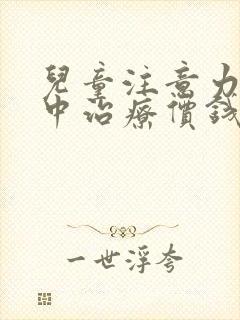 兒童注意力
中治療價錢
一世浮夸